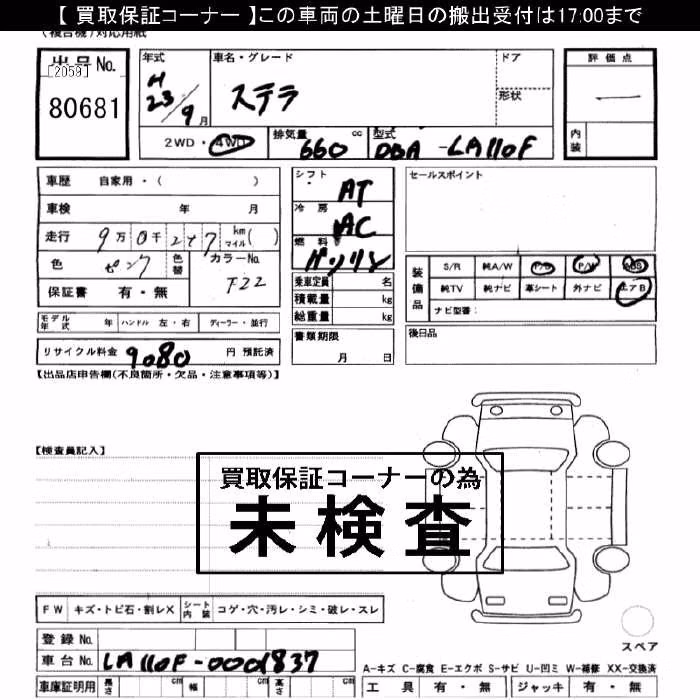 【 買取保証コーナー 】この車両の土曜日の搬出受付は17:00まで
(複合機)対応用紙
出品No.
[2059]
80681
年式
H
23/9月
車名・グレード
ステラ
ドア
形状
評価点
内装
2WD・4WD
排気量
660 cc
型式
DBA-LA110F
車歴 自家用・( )
車検 年 月
走行 9万0千2 7 km マイル( )
色 ピンク
色替
カラーNo.
F22
保証書 有・無
シフト
AT
冷房
AC
燃料
ガソリン
乗車定員 名
積載量 kg
総重量 kg
書類期限
月 日
セールスポイント
装備品
S/R 純A/W P/S P/W ABS
純TV 純ナビ 革シート 外ナビ エアB
ナビ型番:
後日品
モデル年式 年 ハンドル 左・右 ディーラー・並行
リサイクル料金 9080 円 預託済
【出品店申告欄(不良箇所・欠品・注意事項等)】
【検査員記入】
買取保証コーナーの為
未検査
FW キズ・トビ石・割レX シート内装 コゲ・穴・汚レ・シミ・破レ・スレ
登録 No.
車台 No. LA110F-0001837
スペア
A-キズ C-腐食 E-エクボ S-サビ U-凹ミ W-補修 XX-交換済
車庫証明用 長さ cm 幅 cm 高さ cm
工具 有・無 ジャッキ 有・無